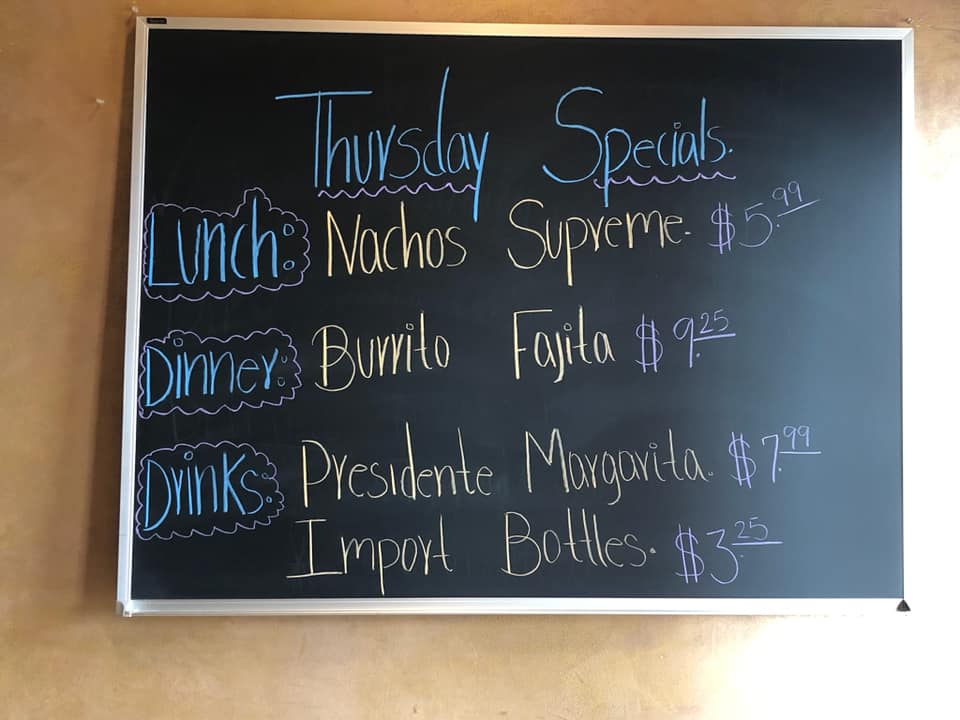 Thursday Specials.
Lunch: Nachos Supreme. $5.99
Dinner: Burrito Fajita $9.25
Drinks: Presidente Margarita. $7.99
Import Bottles. $3.25